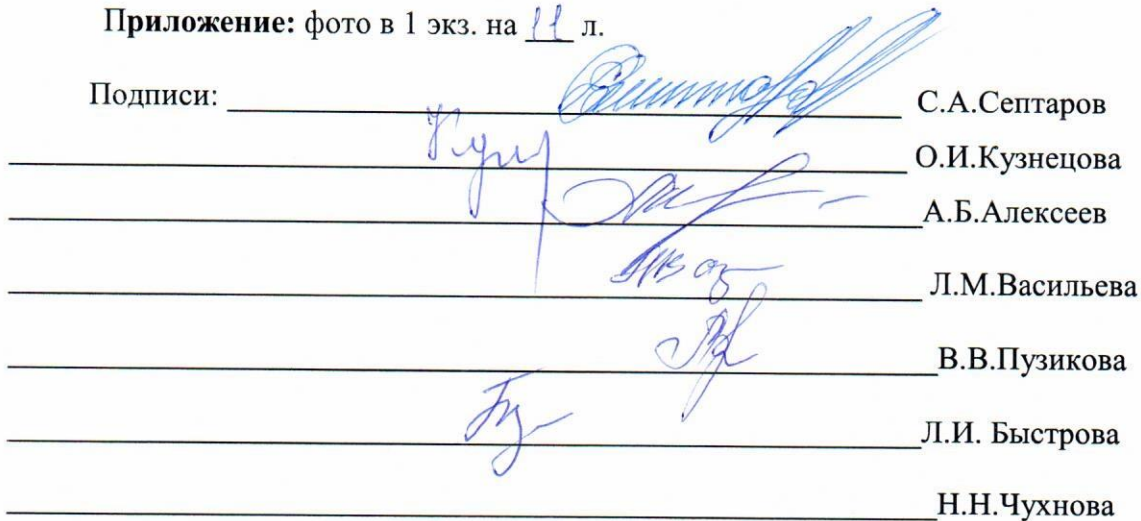 Приложение: фото в 1 экз. на 11 л.
Подписи: С.А.Септаров
О.И.Кузнецова
А.Б.Алексеев
Л.М.Васильева
В.В.Пузикова
Л.И. Быстрова
Н.Н.Чухнова